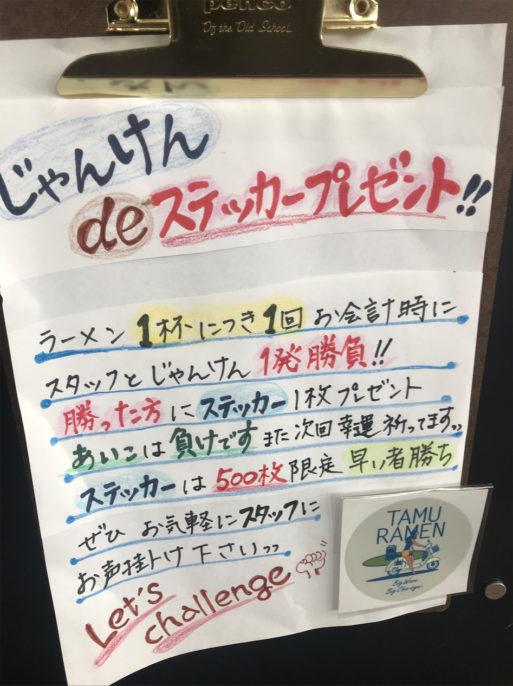 penco
Of the Old School
じゃんけん
de ステッカープレゼント!!
ラーメン 1杯につき1回 お会計時に
スタッフとじゃんけん 1発勝負!!
勝った方にステッカー1枚プレゼント
あいこは負けです また次回幸運祈ってます〟
ステッカーは500枚限定 早い者勝ち
ぜひ お気軽にスタッフに
お声掛け下さい〟
Let's
challenge
TAMU
RAMEN
Big Wave